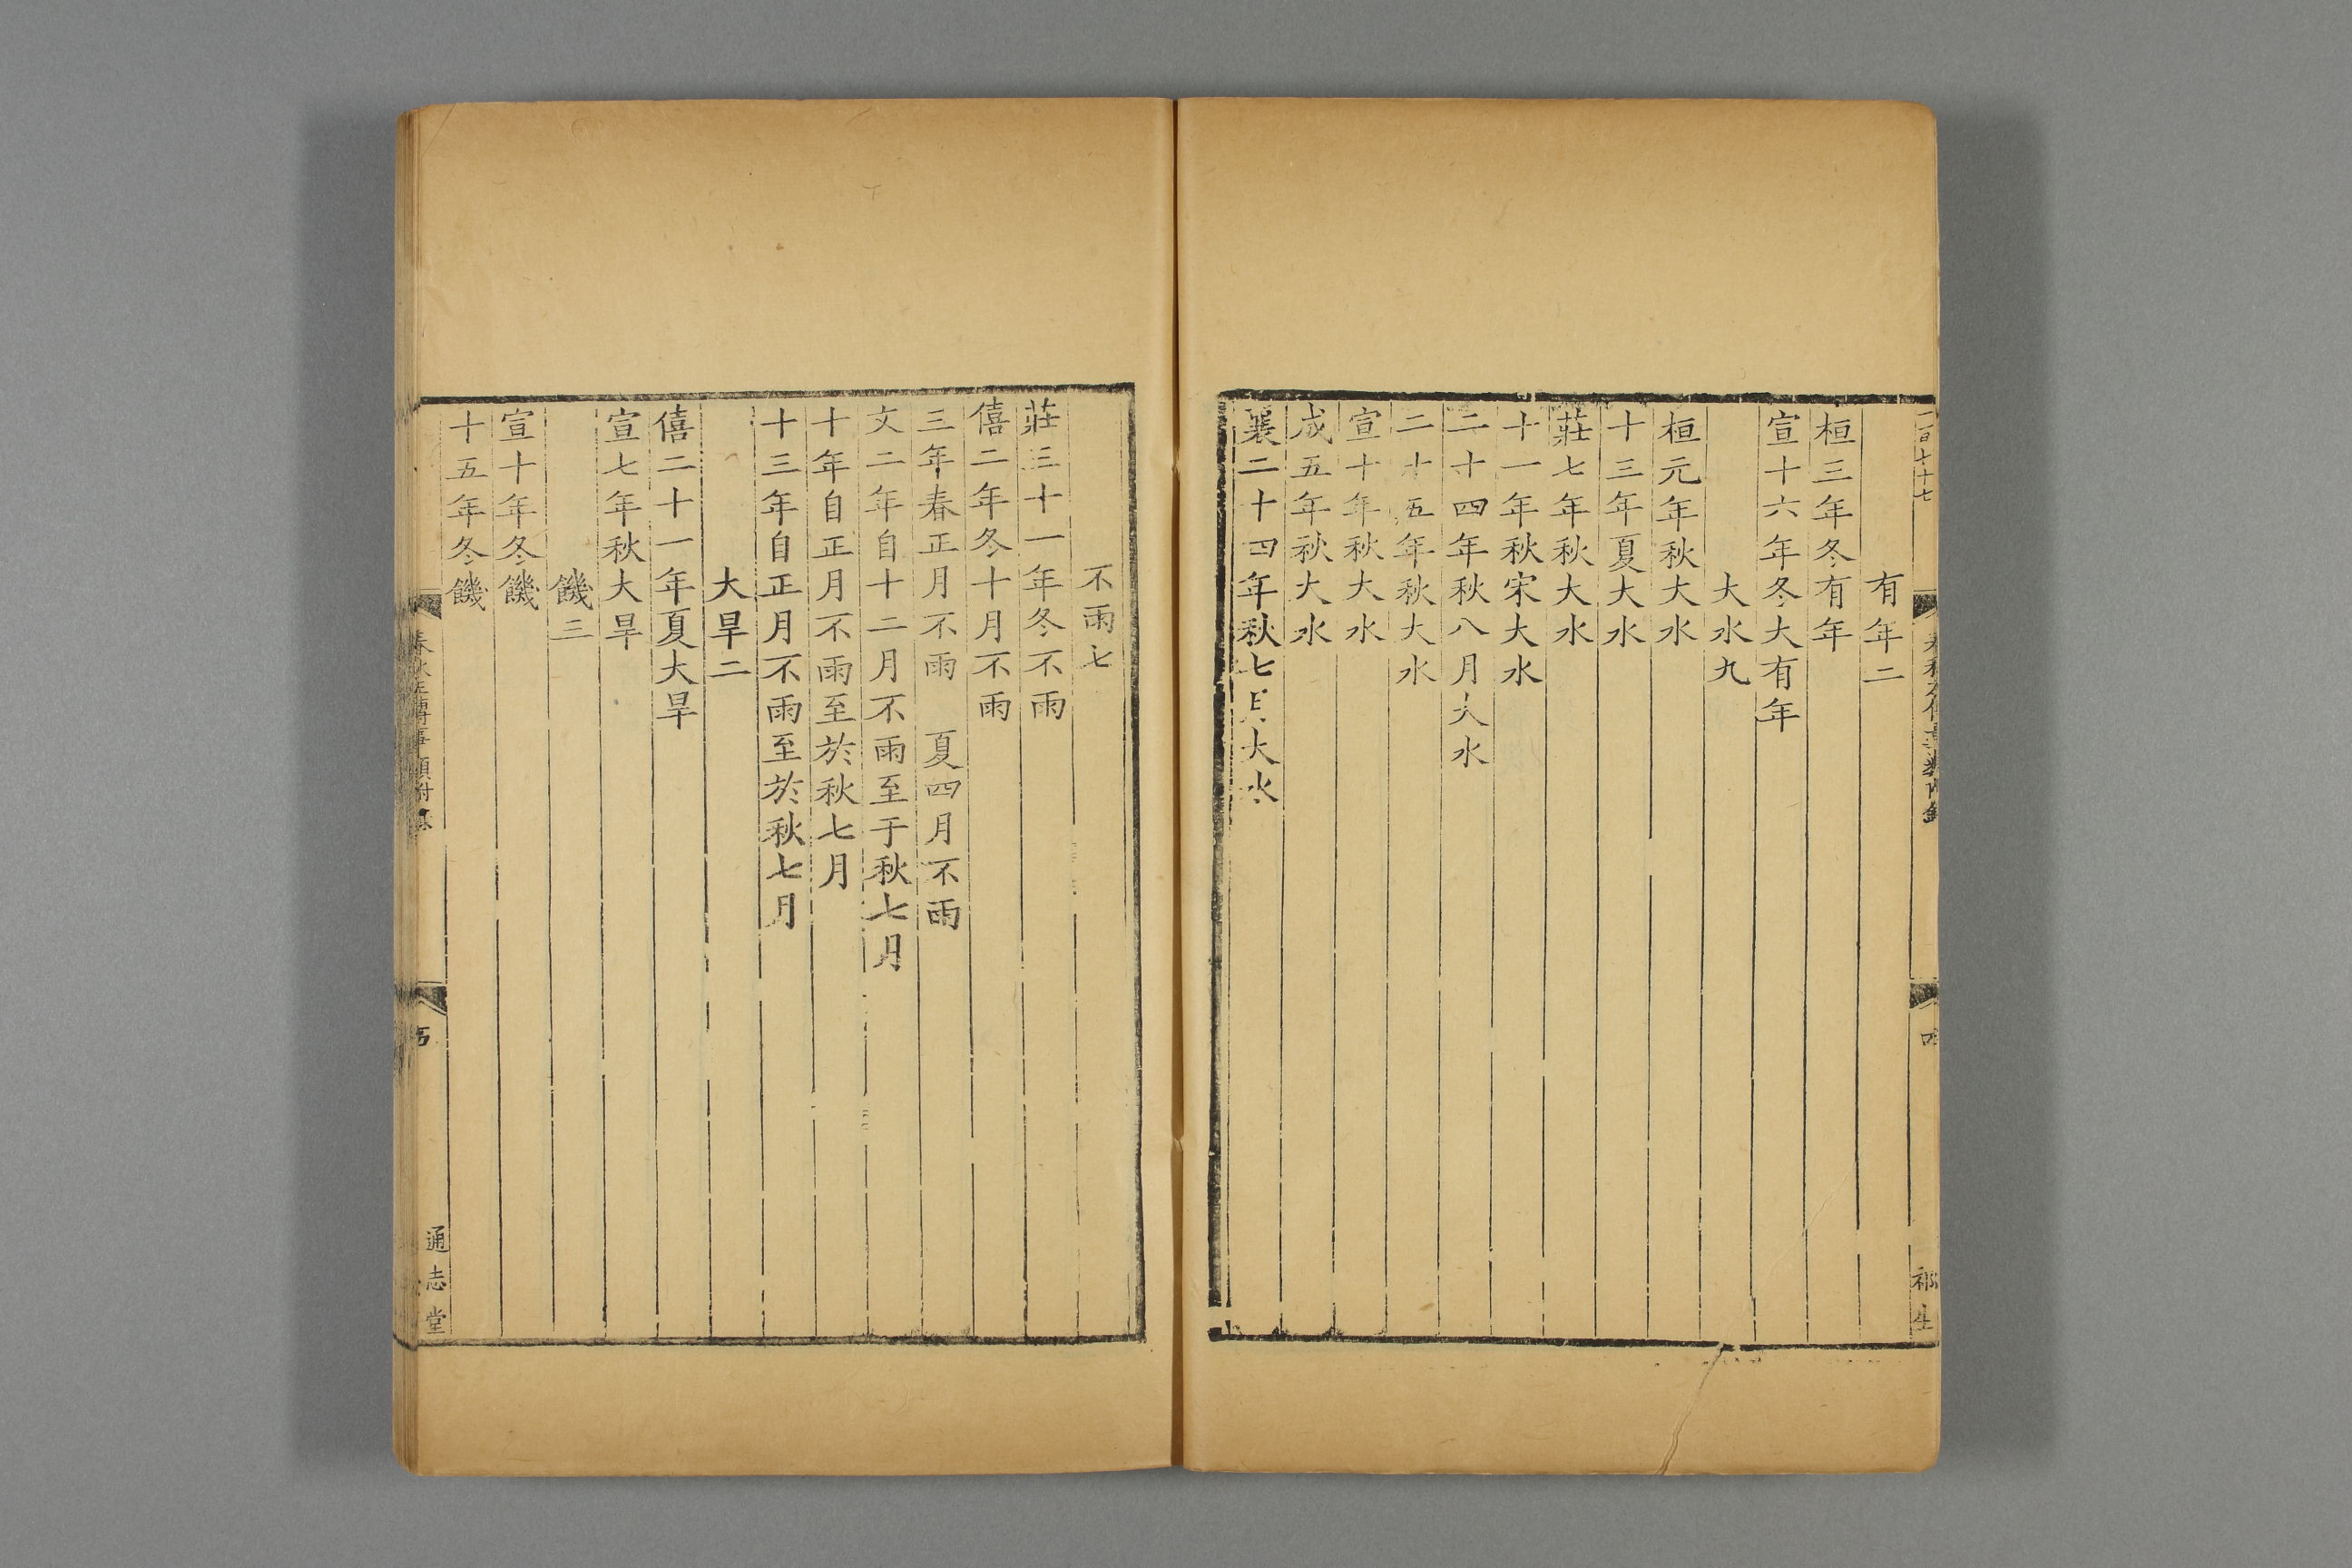 有年二
桓三年冬有年
宣十六年冬大有年
大水九
桓元年秋大水
十三年夏大水
莊七年秋大水
十一年秋宋大水
二十四年秋八月大水
二十五年秋大水
宣十年秋大水
成五年秋大水
襄二十四年秋七月大水
不雨七
莊三十一年冬不雨
僖二年冬十月不雨
三年春正月不雨　夏四月不雨
文二年自十二月不雨至于秋七月
十年自正月不雨至於秋七月
十三年自正月不雨至於秋七月
大旱二
僖二十一年夏大旱
宣七年秋大旱
饑三
宣十年冬饑
十五年冬饑
通志堂